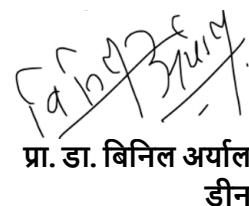 बिनिल अर्याल
प्रा. डा. बिनिल अर्याल
डीन